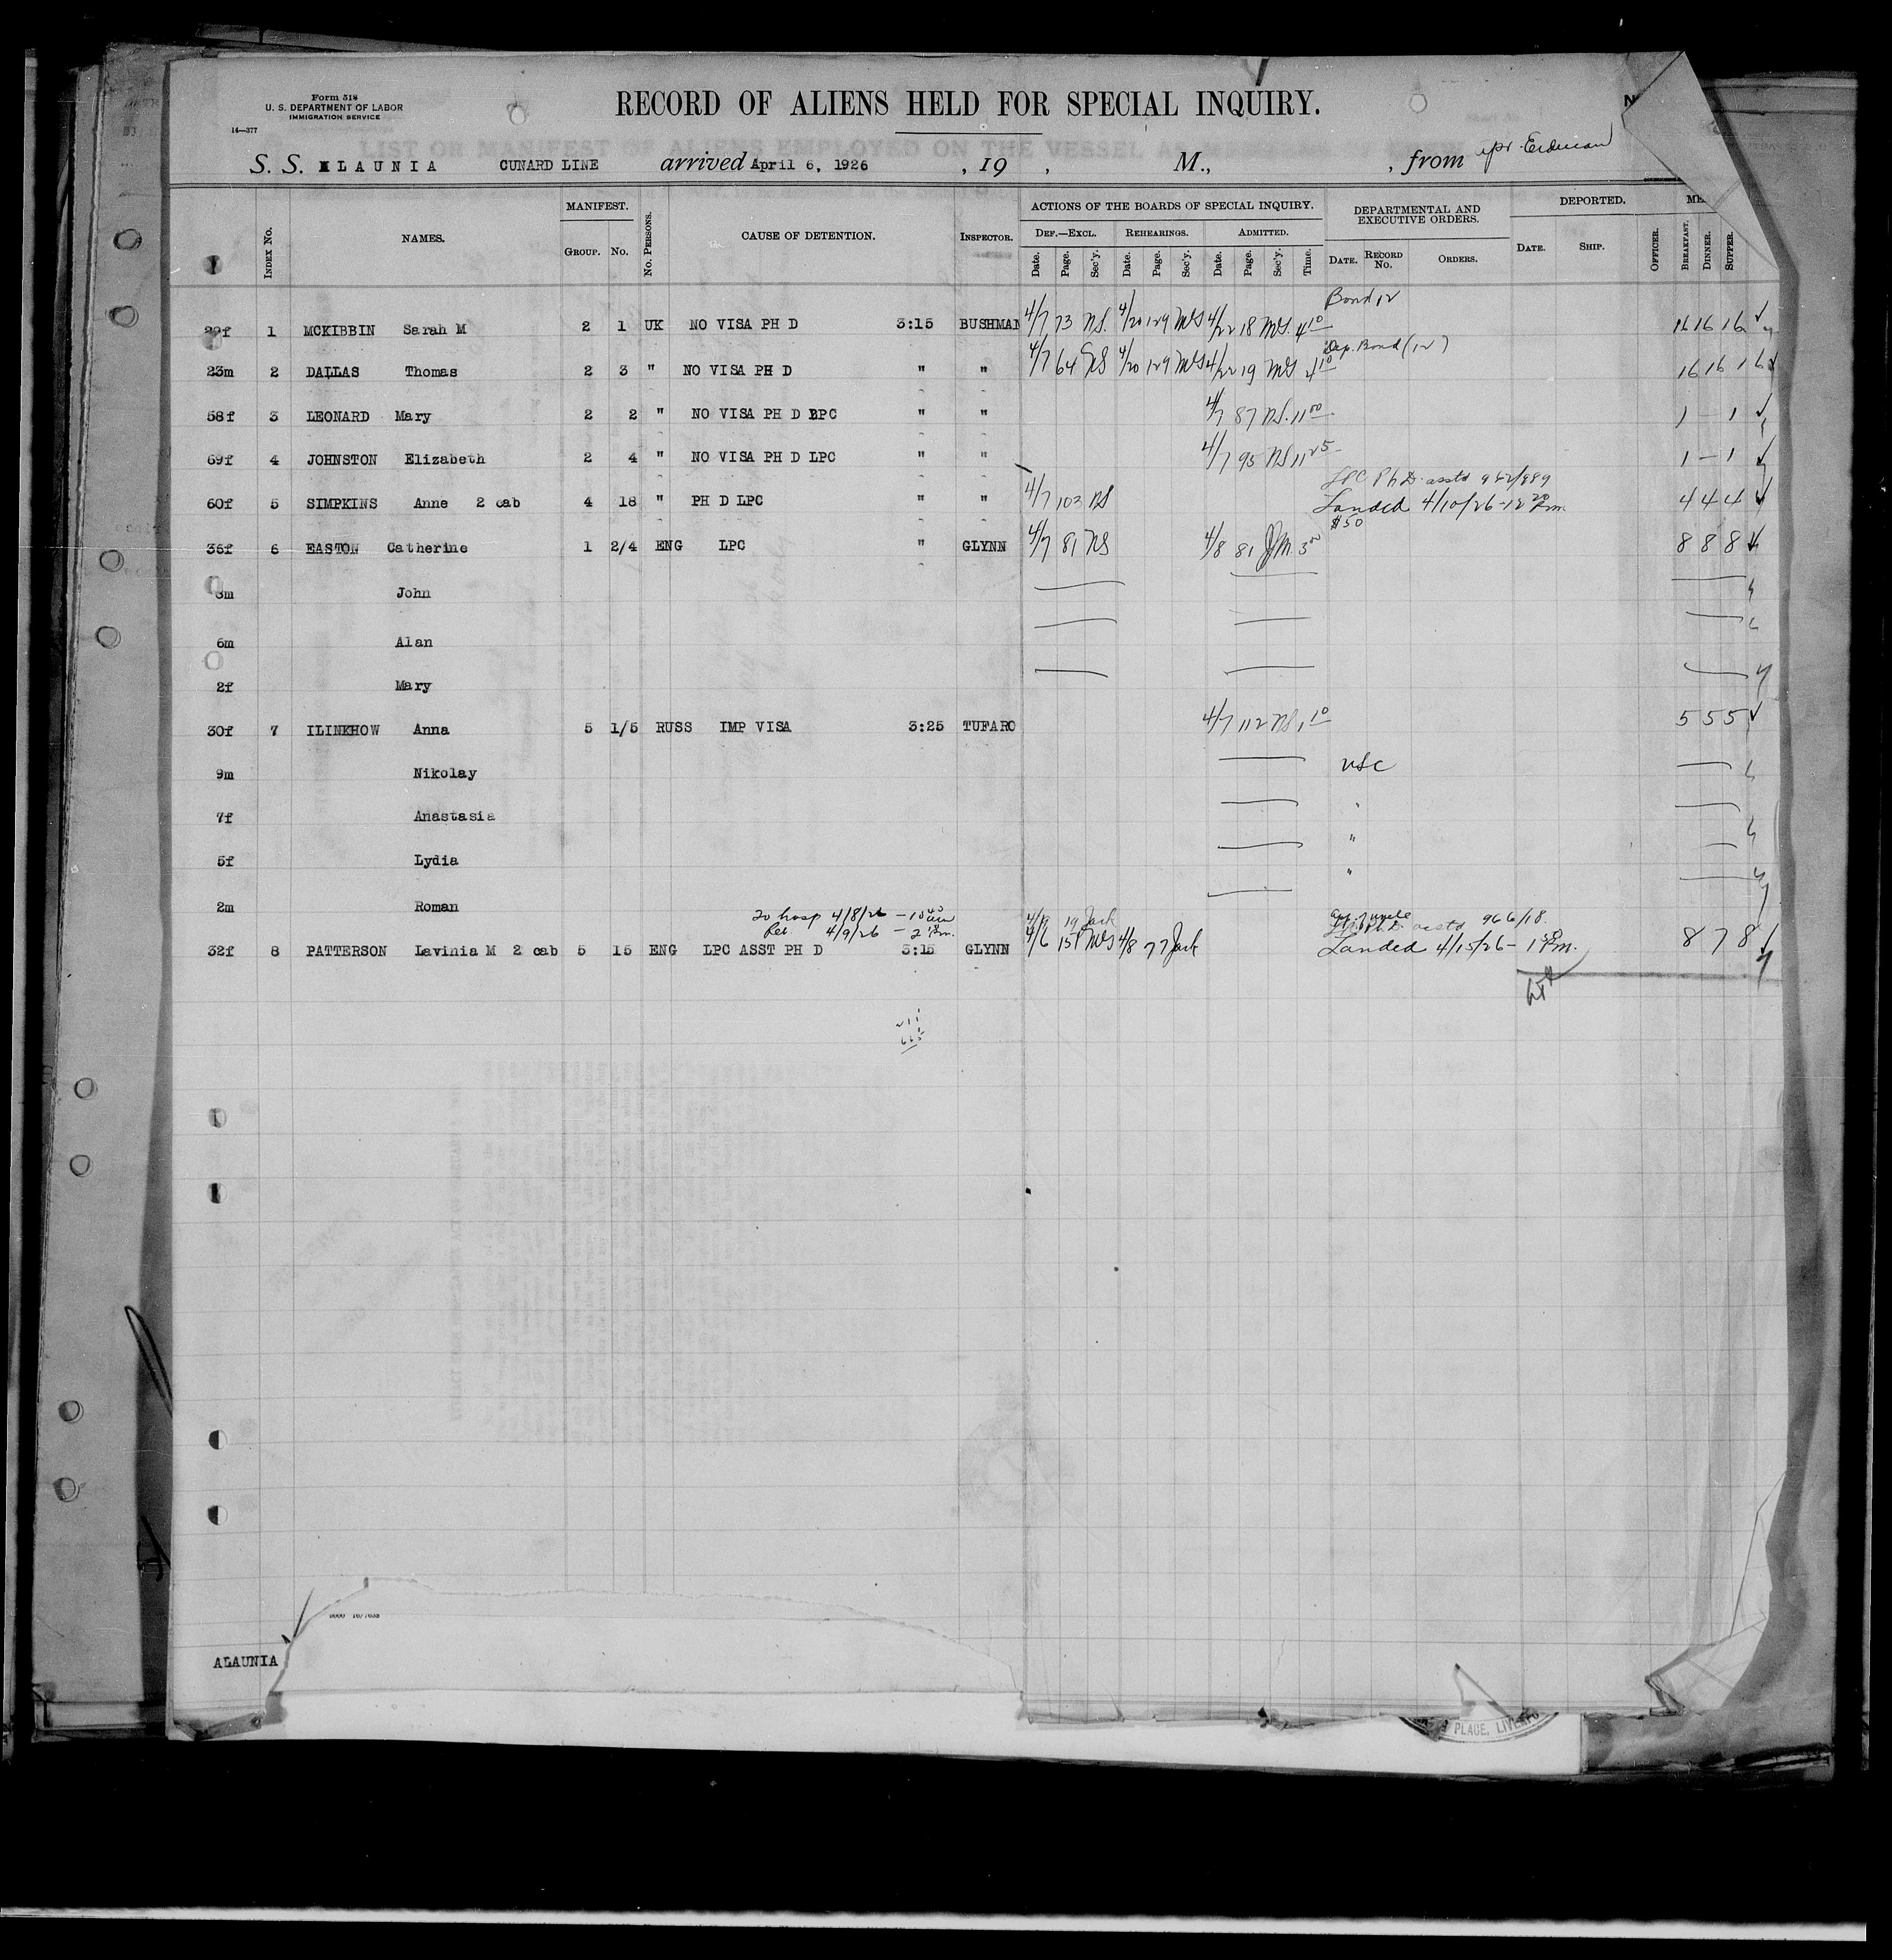 Form 518
U. S. DEPARTMENT OF LABOR
IMMIGRATION SERVICE
14—377
RECORD OF ALIENS HELD FOR SPECIAL INQUIRY.
S. S. ALAUNIA CUNARD LINE arrived April 6, 1926 , 19 , M., , from
MANIFEST. ACTIONS OF THE BOARDS OF SPECIAL INQUIRY. DEPARTMENTAL AND EXECUTIVE ORDERS. DEPORTED.
INDEX No. NAMES. GROUP. No. No. PERSONS. CAUSE OF DETENTION. INSPECTOR. DEF.—EXCL. REHEARINGS. ADMITTED.
Date. Page. Sec'y. Date. Page. Sec'y. Date. Page. Sec'y. Time. DATE. RECORD No. ORDERS. DATE. SHIP. OFFICER. BREAKFAST. DINNER. SUPPER.
Bond
1 MCKIBBIN Sarah M 2 1 UK NO VISA PH D 3:15 BUSHMAN 4/7 73 NS. 4/20 129 MS 4/22 18 MS. 4 10 16 16 16
Dep. Bond
23m 2 DALLAS Thomas 2 3 " NO VISA PH D " " 4/7 64 NS 4/20 129 MS 4/22 19 MS 4 10 16 16 16
58f 3 LEONARD Mary 2 2 " NO VISA PH D BPC " " 4/7 87 NS. 11 00 1 — 1
69f 4 JOHNSTON Elizabeth 2 4 " NO VISA PH D LPC " " 4/7 95 NS 11 25 1 — 1
LPC Ph D. asstd
60f 5 SIMPKINS Anne 2 cab 4 18 " PH D LPC " " 4/7 103 NS Landed 4/10/26 - 12 20 Pm. 4 4 4
$50
36f 6 EASTON Catherine 1 2/4 ENG LPC " GLYNN 4/7 81 NS 4/8 81 3 8 8 8
John
6m Alan
2f Mary
30f 7 ILINKHOW Anna 5 1/5 RUSS IMP VISA 3:25 TUFARO 4/7 112 NS 1 10 5 5 5
9m Nikolay USC
7f Anastasia "
5f Lydia "
2m Roman "
To hosp 4/8/26 — 10 40 am
Ret 4/9/26 — 2 Pm.
asstd 966/18
32f 8 PATTERSON Lavinia M 2 cab 5 15 ENG LPC ASST PH D 3:15 GLYNN 4/6 151 MS 4/8 77 Jack Landed 4/15/26 — 1 Pm. 8 7 8
ALAUNIA
PLACE,